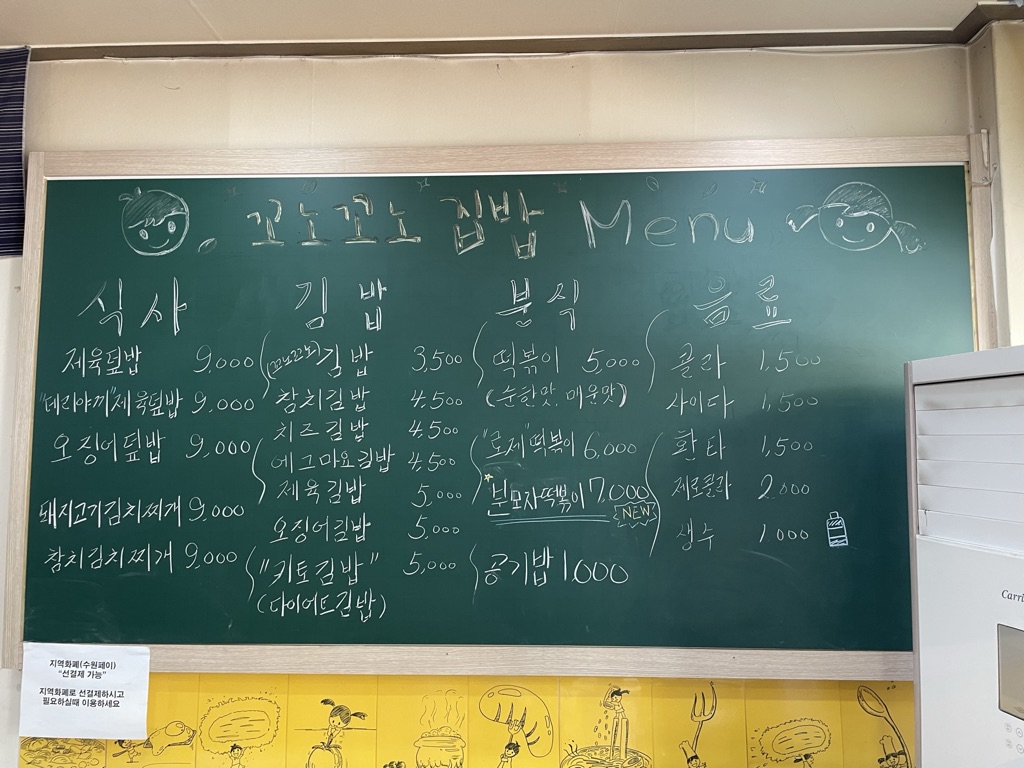 꼬노꼬노 집밥 Menu
식사
제육덮밥 9,000
"데리야끼"제육덮밥 9,000
오징어덮밥 9,000
돼지고기김치찌개 9,000
참치김치찌개 9,000
김밥
(꼬노꼬노)김밥 3,500
참치김밥 4,500
치즈김밥 4,500
에그마요김밥 4,500
제육김밥 5,000
오징어김밥 5,000
"키토김밥" 5,000
(다이어트김밥)
분식
떡볶이 5,000
(순한맛, 매운맛)
"로제"떡볶이 6,000
분모자떡볶이 7,000
NEW
공기밥 1000
음료
콜라 1,500
사이다 1,500
환타 1,500
제로콜라 2,000
생수 1000
지역화폐(수원페이)
"선결제 가능"
지역화폐로 선결제하시고
필요하실때 이용하세요
Carri